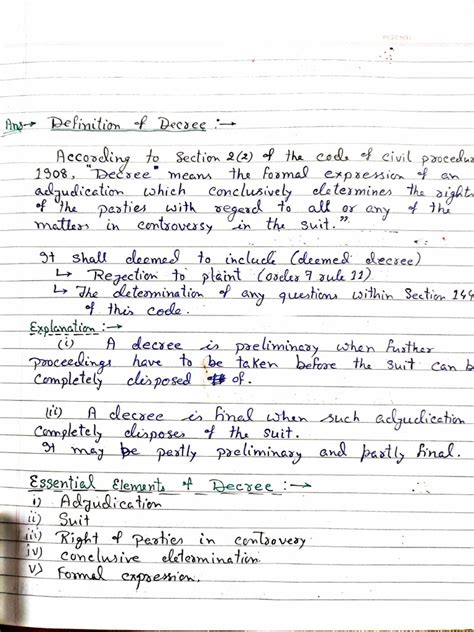 Ans→ Definition of Decree :→
According to Section 2(2) of the code of civil procedur
1908, "Decree" means the formal expression of an
adjudication which conclusively determines the rights
of the parties with regard to all or any of the
matters in controversy in the suit."
It shall deemed to include (deemed decree)
↳ Rejection to plaint (order 7 rule 11)
↳ The determination of any questions within Section 144
of this code.
Explanation :→
(i) A decree is preliminary when further
proceedings have to be taken before the suit can b
completely disposed of.
(ii) A decree is final when such adjudication
completely disposes of the suit.
It may be partly preliminary and partly final.
Essential Elements of Decree :→
i) Adjudication
ii) Suit
iii) Right of Parties in controvery
iv) conclusive determination
v) Formal expression.